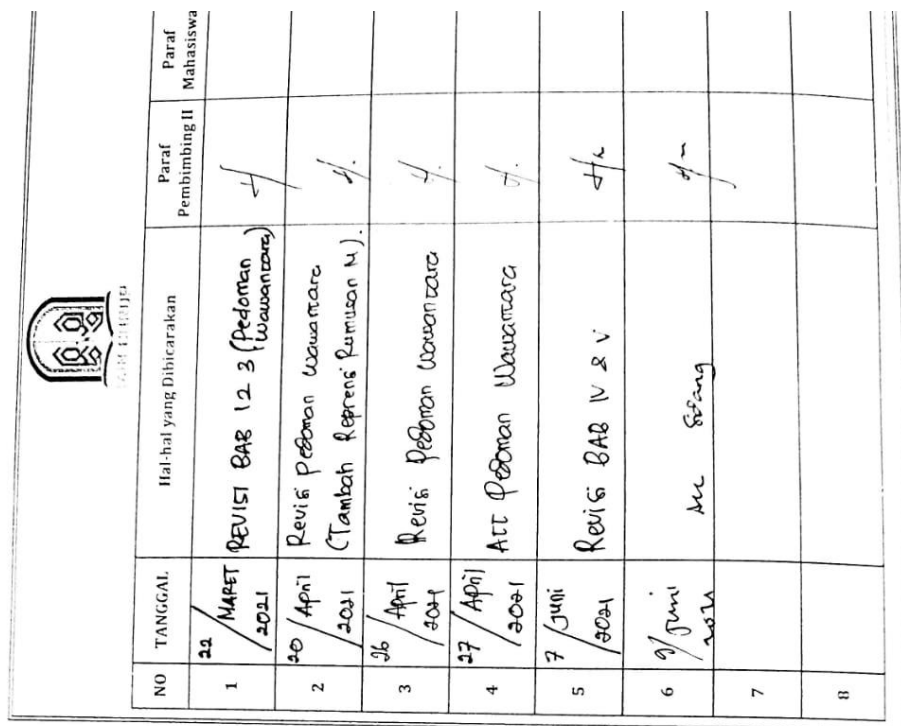 NO TANGGAL Hal-hal yang Dibicarakan Paraf Pembimbing II Paraf Mahasiswa
1 22/MARET 2021 REVISI BAB 1 2 3 (Pedoman Wawancara)
2 20/April 2021 Revisi Pedoman Wawancara
(Tambah Rumusan M).
3 26/April 2021 Revisi Pedoman Wawancara
4 27/April 2021 Acc Pedoman Wawancara
5 7/Juni 2021 Revisi BAB IV & V
6 9/Juni 2021 Acc Sidang
7
8